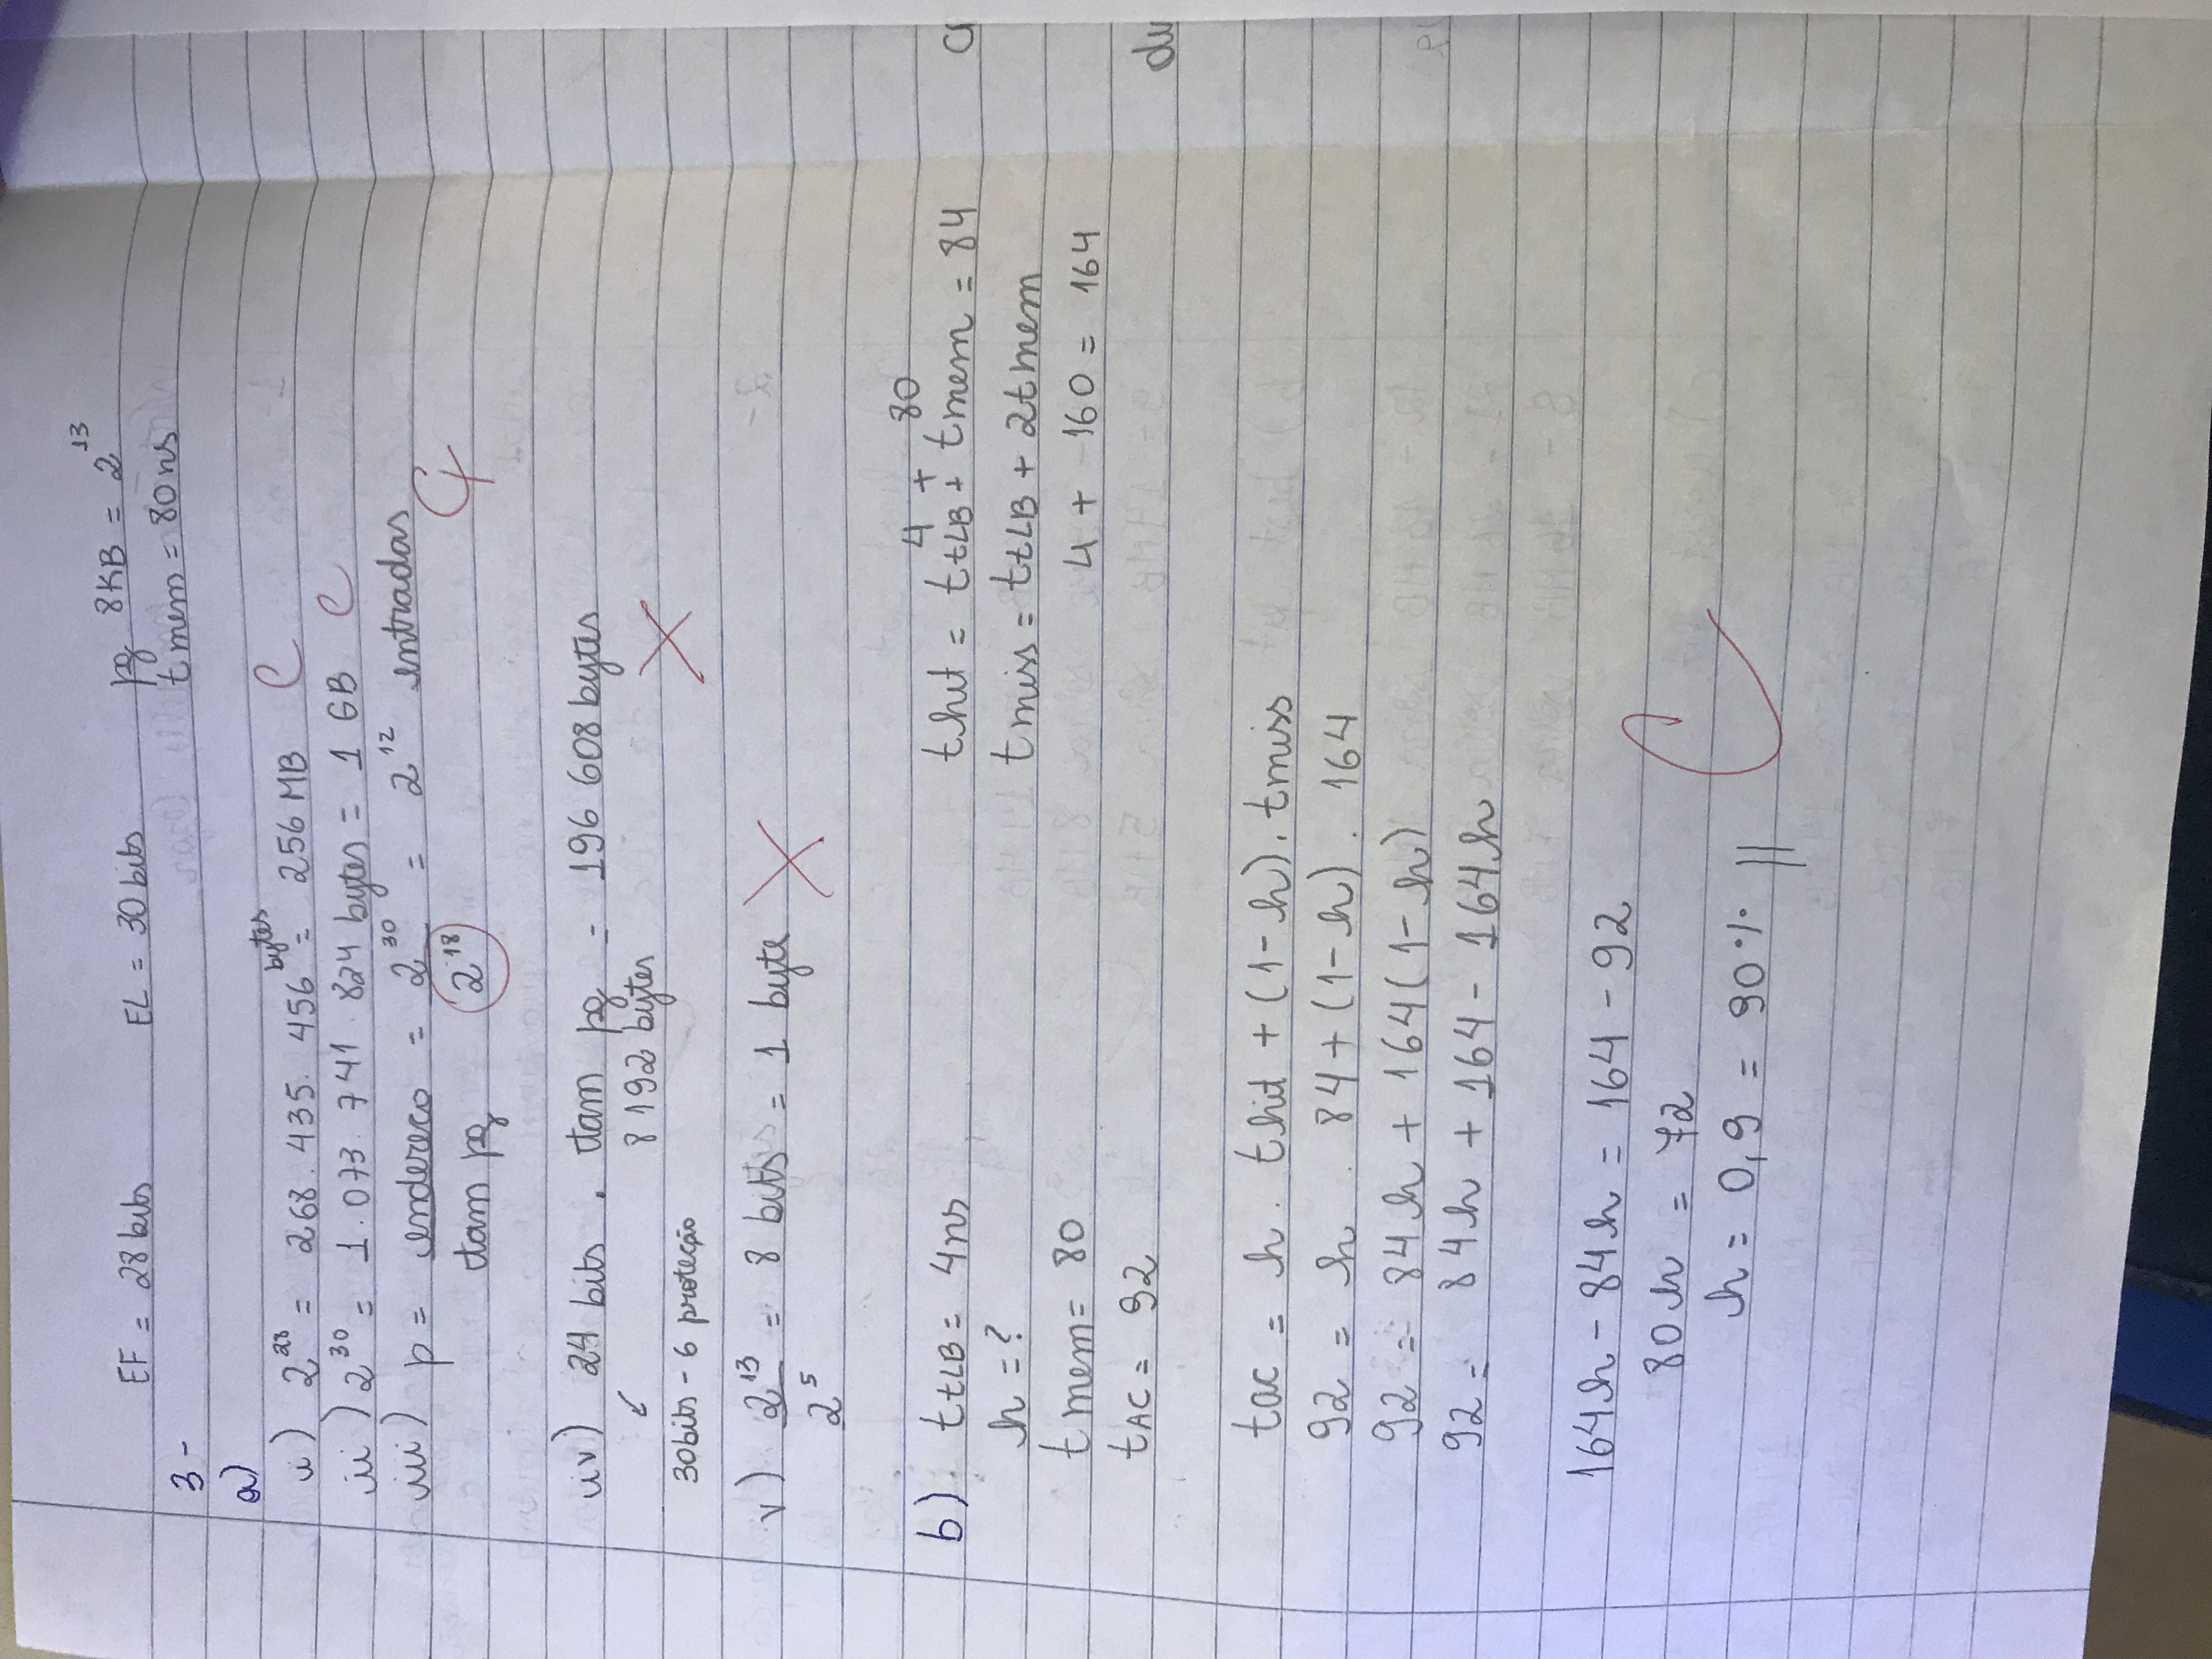 EF = 28 bits EL = 30 bits pg 8KB = 2^13
3 - t mem = 80 ns
a)
i) 2^28 = 268.435.456 bytes = 256 MB C
ii) 2^30 = 1.073.741.824 bytes = 1 GB C
iii) p = endereco = 2^30 = 2^12 entradas
tam pg 2^18
iv) 24 bits . tam pg = 196 608 bytes
↙ 8 192 bytes X
30 bits - 6 proteção
v) 2^13 = 8 bits = 1 byte X
2^5
4 + 80
b) t tLB = 4ns t hit = t tLB + t mem = 84
h = ? t miss = t tLB + 2t mem
t mem = 80 4 + 160 = 164
tAC = 92
tac = h . t hit + (1 - h) . t miss
92 = h . 84 + (1 - h) . 164
92 = 84h + 164(1 - h)
92 = 84h + 164 - 164h
164h - 84h = 164 - 92
80h = 72
h = 0,9 = 90% || C